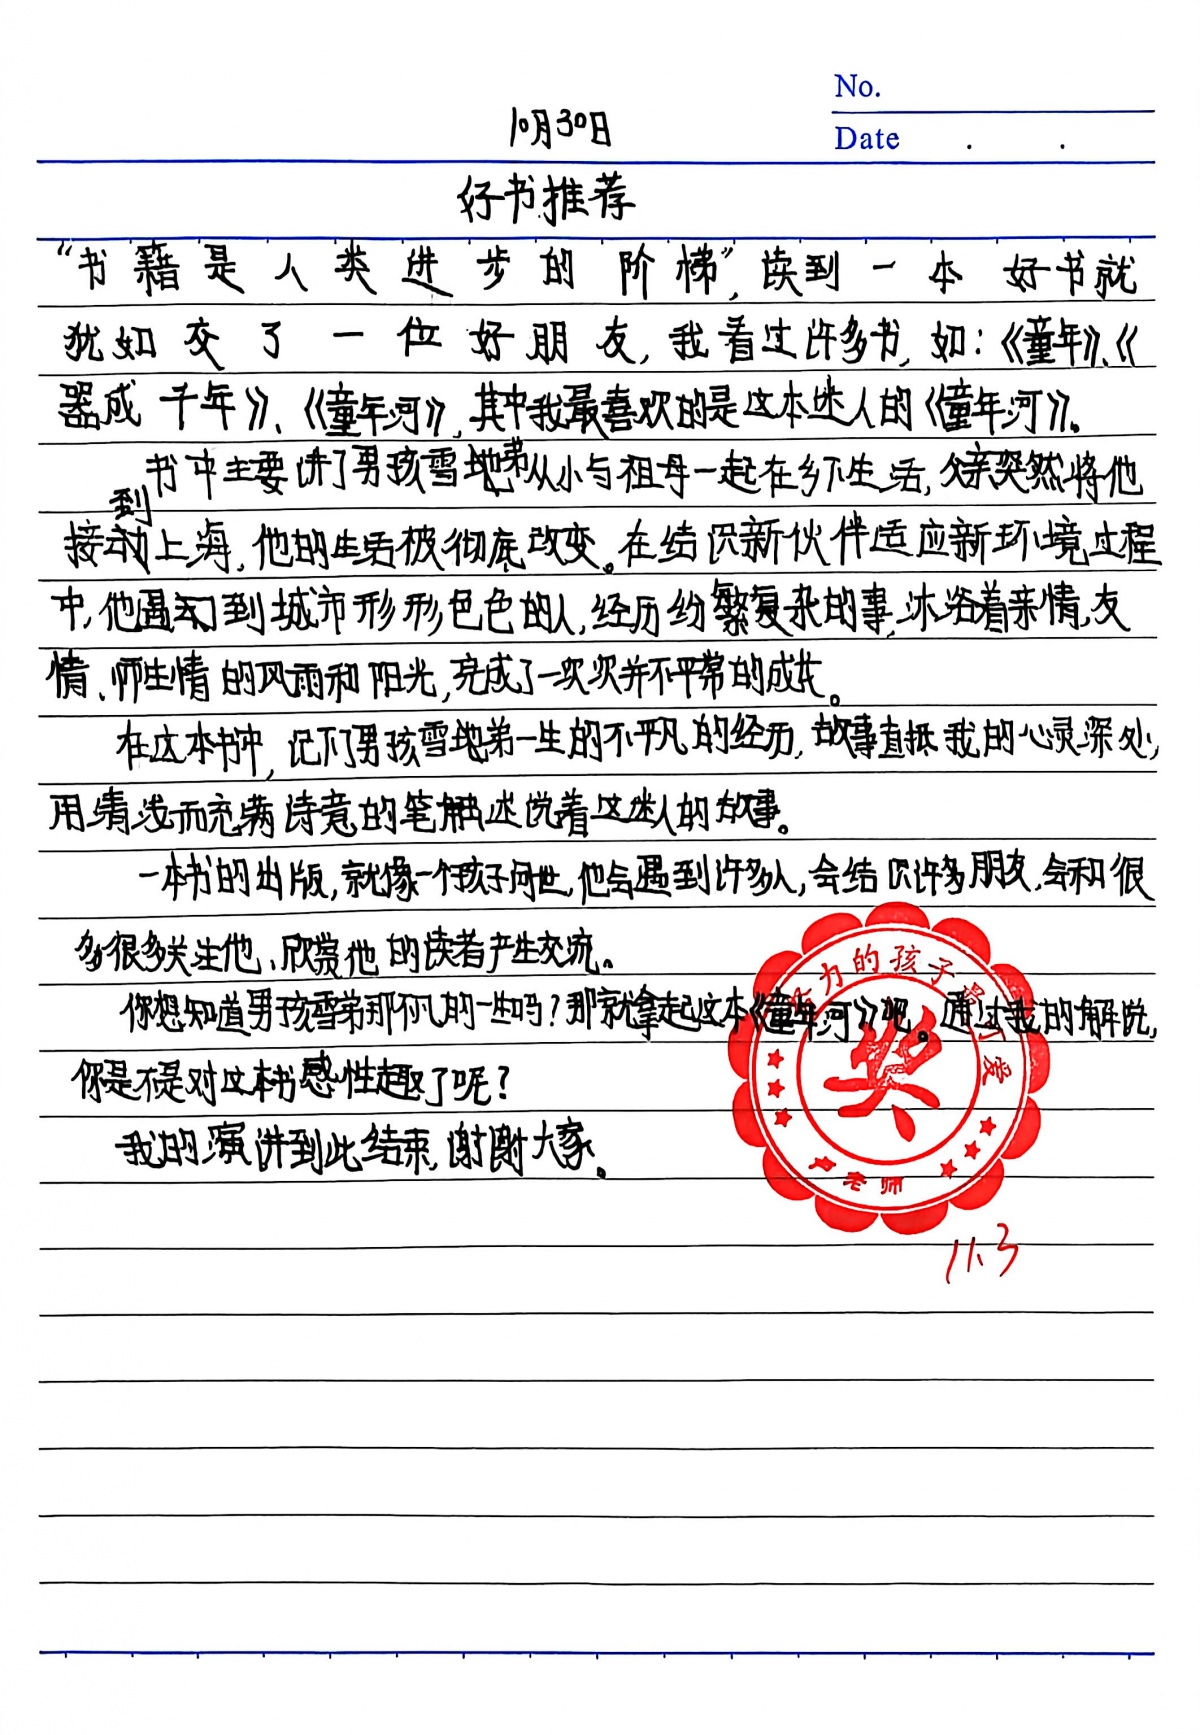 No.
10月30日
Date . .
好书推荐
“书籍是人类进步的阶梯”,读到一本好书就
犹如交了一位好朋友,我看过许多书,如:《童年》、《
器成千年》、《童年河》,其中我最喜欢的是这本迷人的《童年河》。
书中主要讲了男孩雪地弟从小与祖母一起在乡下生活,父亲突然将他
到
接动上海,他的生活被彻底改变。在结识新伙伴适应新环境过程
中,他遇到城市形形色色的人,经历纷繁复杂的事,沐浴着亲情,友
情、师生情的风雨和阳光,完成了一次次并不平常的成长。
在这本书中,记下了男孩雪地弟一生的不平凡的经历,故事直抵我的心灵深处,
用清浅而充满诗意的笔触述说着这迷人的故事。
一本书的出版,就像一个孩子问世,他会遇到许多人,会结识许多朋友,会和很
多很多关注他、欣赏他的读者产生交流。
你想知道男孩雪弟那不凡的一生吗?那就拿起这本《童年河》吧。通过我的解说,
你是不是对这本书感性趣了呢?
我的演讲到此结束,谢谢大家。
努力的孩子最可爱
奖
卢老师
11.3